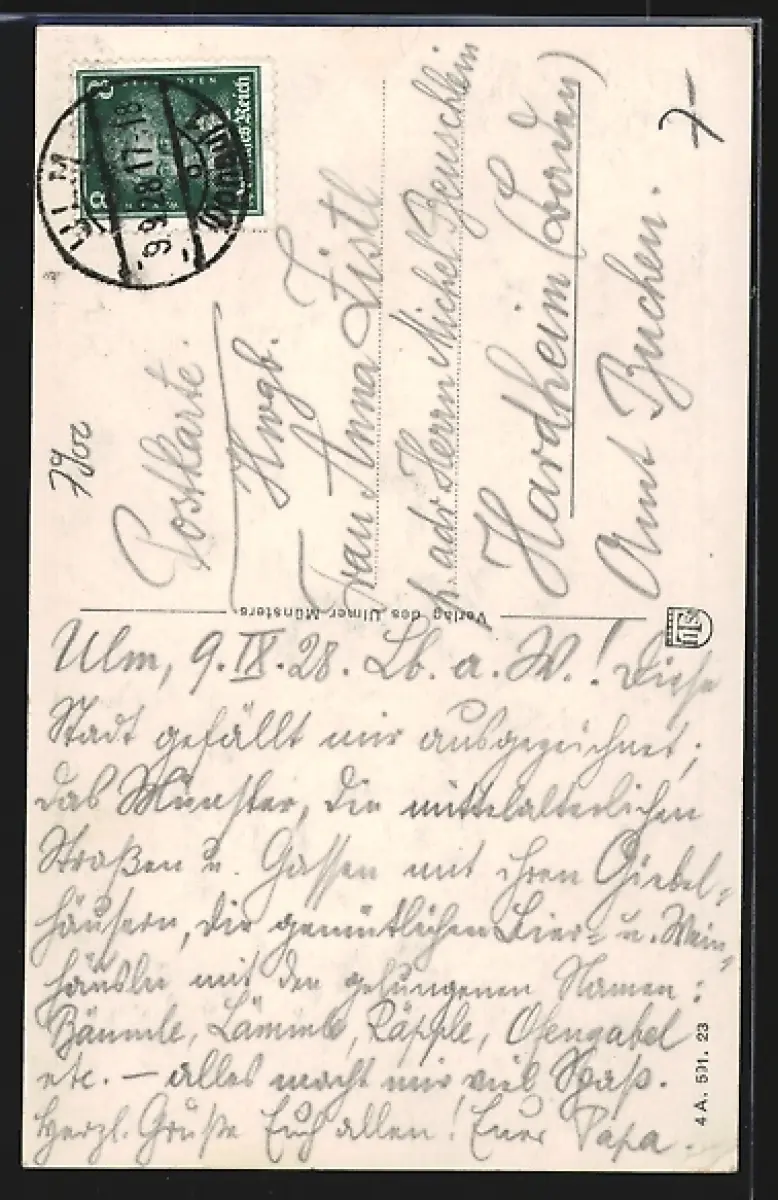 Deutsches Reich
8
8
ULM
- 9.9.28 17-18
(Donau)
7
7900
Postkarte.
Hwgb.
Frau Anna Listl
p. adr. Herrn Michel Beuschlein
Hardheim (Baden)
Amt Buchen.
Verlag des Ulmer Münsters
Ulm, 9.IX.28. Lb. a. W.! Diese
Stadt gefällt mir ausgezeichnet;
das Münster, die mittelalterlichen
Straßen u. Gassen mit ihren Giebel-
häusern, die gemütlichen Bier- u. Wein-
häusle mit den gelungenen Namen:
Bäumle, Lämmle, Räpple, Ofengabel
etc. – alles macht mir viel Spaß.
Herzl. Grüße Euch allen! Euer Papa.
4 A. 591. 23